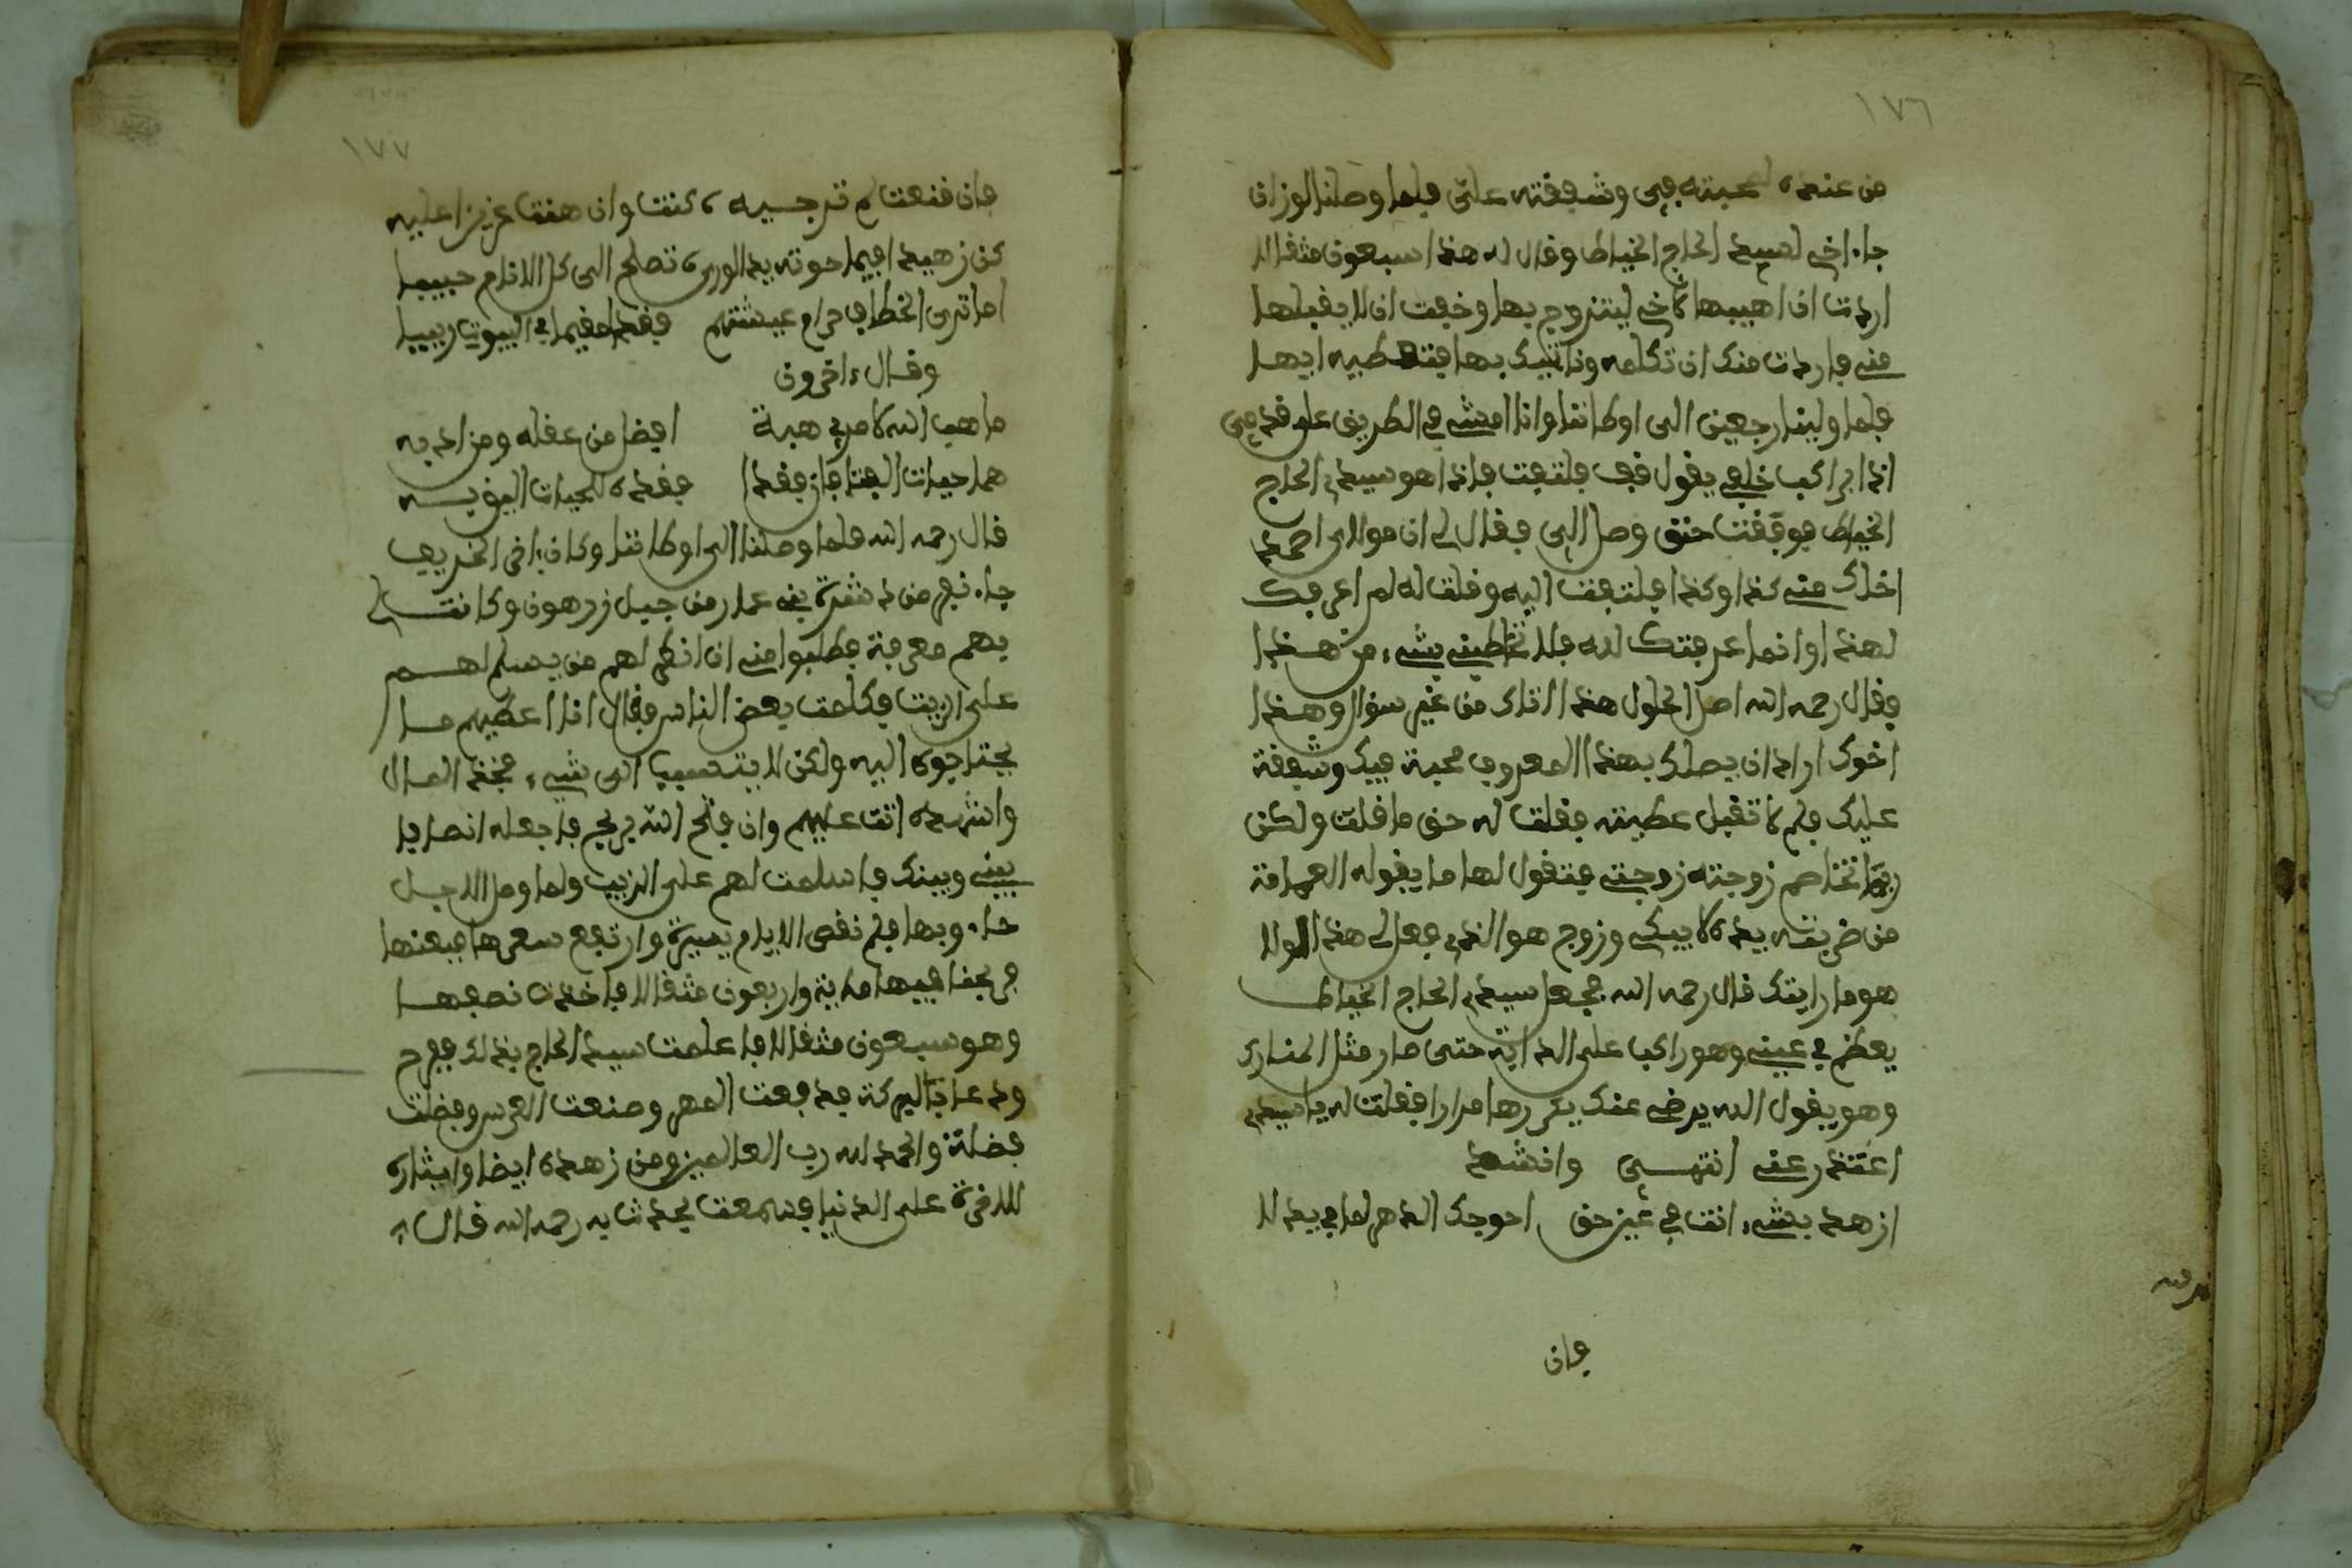 ١٧٦
من عنده لمحبته في وشفقته علي فلما وصلنا لوزان
جاء اخي لسيد الحاج الخياط وقال له هذه سبعون مثقالا
اردت ان اهبها لاخي ليتزوج بها وخفت ان لا يقبلها
مني فاردت منك ان تكلمه وناتيك بها فتعطيه ايها
فلما ولينا رجعين الى اوطاننا وانا امشي في الطريق على قدمي
اذا براكب خلفي يقول قف فلتفت فاذا هو سيدي الحاج
الخياط فوقفت حتى وصل الي فقال لي ان مولاي احمد
اخاك مني كذا وكذا فلتفت اليه وقلت له لم اعرفك
لهذا وانما عرفتك لله فلا تخاطبني بشيء من هذا
فقال رحمه الله اصل الحلول هذا اتاك من غير سؤال وهذا
اخوك اراد ان يصلك بهذا المعروف محبة فيك وشفقة
عليك فلم لا تقبل عطيته فقلت له حق ما قلت ولكن
ربما تخاصم زوجته زوجتي فتقول لها ما يقوله العامة
من ضربته يده لا يبكي وزوج هو الذي فعل لي هذا لولا
هو ما رايتك قال رحمه الله فجعل سيدي الحاج الخياط
يعظم في عيني وهو راكب على الدابة حتى صار مثل المنارة
وهو يقول الله يرضى عنك يكررها مرارا فقلت له يا سيدي
اعتذر عني انتهى وانشد
ازهد بشيء انت في غير حق احوجك الدهر لما في يد لا
فان
١٧٧
فان قنعت لم ترجيه كنت وان هنت عزيزا عليه
كن زهيدا فيما حوته يد الورى تصلح الى كل الانام حبيبا
اما ترى الخطاف حرام عيشتهم فغدا مقيما في البيوت ربيبا
وقال اخرون
ما هب الله لامرئ هبة افضل من عقله ومن ادبه
هما حيات الفتا فان فقدا ففقده للحيات اليق به
قال رحمه الله فلما وصلنا الى اوطاننا وكان باقي الخريف
جاء نفر من دشرة بني عمار من جبل زرهون وكانت لي
بهم معرفة فطلبوا مني ان انظر لهم من يسلم لهم
على الزبيب فكلمت بعض الناس فقال انا اعطيهم ما
يحتاجون اليه ولكن لا يتسبب الى شيء فخذ المال
واشهده انت عليهم وان فتح الله بربح فاجعله انصافا
بيني وبينك فاسلمت لهم على الزبيب ولما وصل الاجل
جاء وبها فلم نقص الايام يسيرة وارتفع سعرها فبعنها
فربحنا فيها ماية واربعون مثقالا فاخذت نصفها
وهو سبعون مثقالا فاعلمت سيد الحاج بذلك ففرح
ودعا بالبركة فدفعت المهر وصنعت العرس وفضلت
فضلة والحمد لله رب العالمين ومن زهده ايضا وايثاره
للاخرة على الدنيا فسمعت يحدث به رحمه الله قال